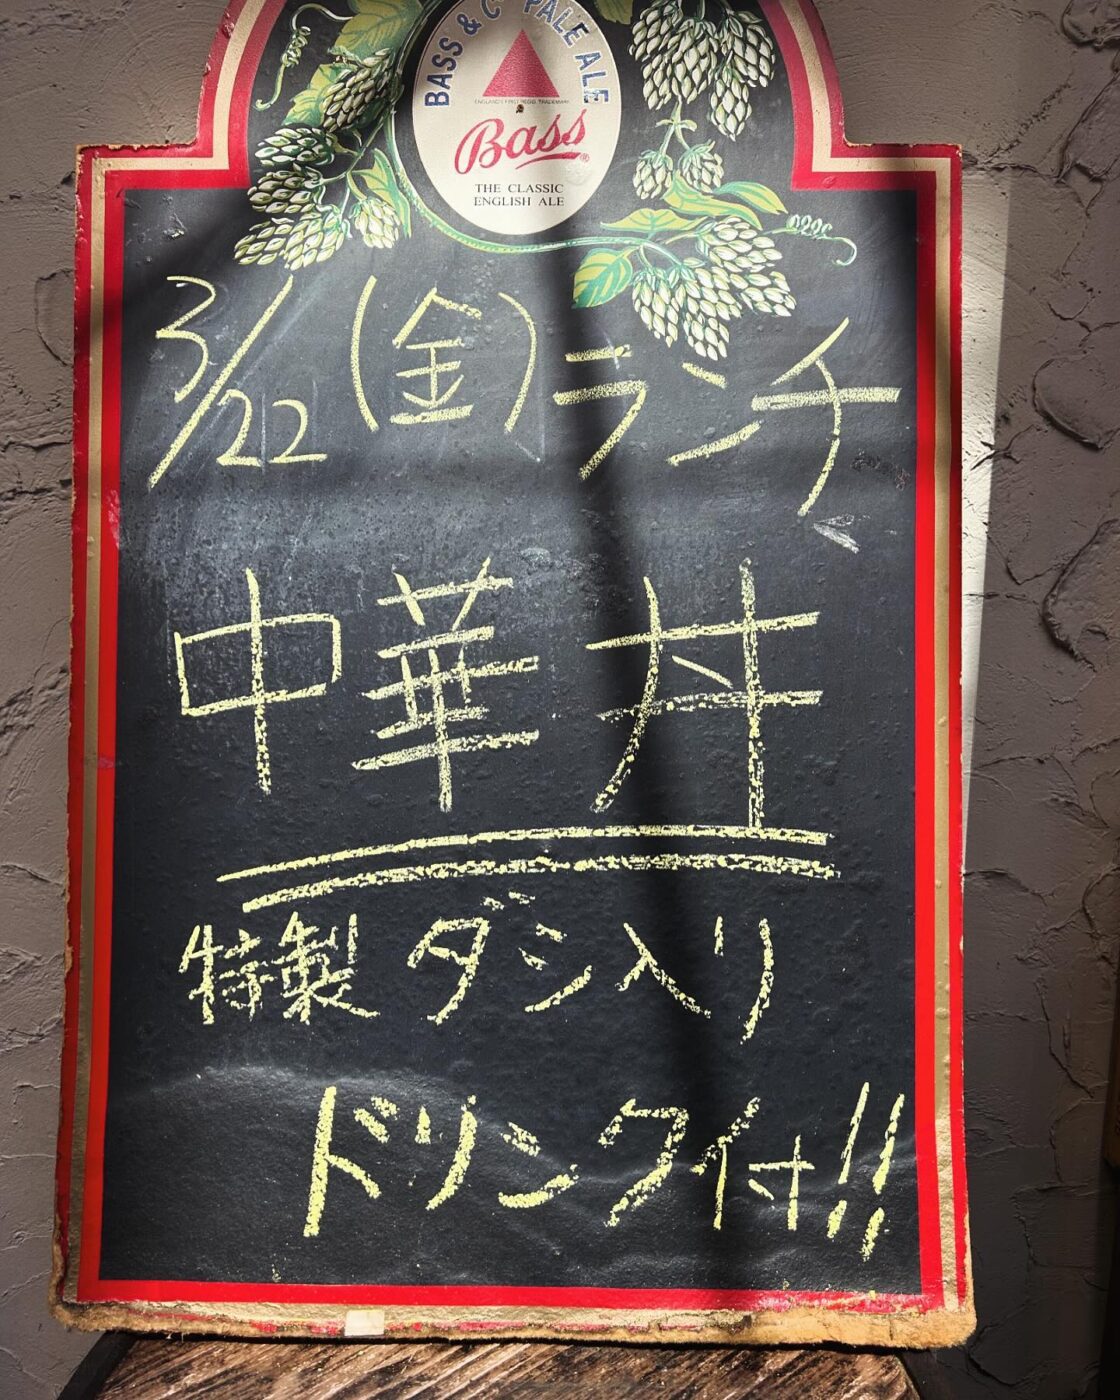 BASS & Co PALE ALE
ENGLAND'S FIRST REGD. TRADEMARK
Bass
THE CLASSIC
ENGLISH ALE
3/22(金)ランチ
中華丼
特製ダシ入り
ドリンク付!!